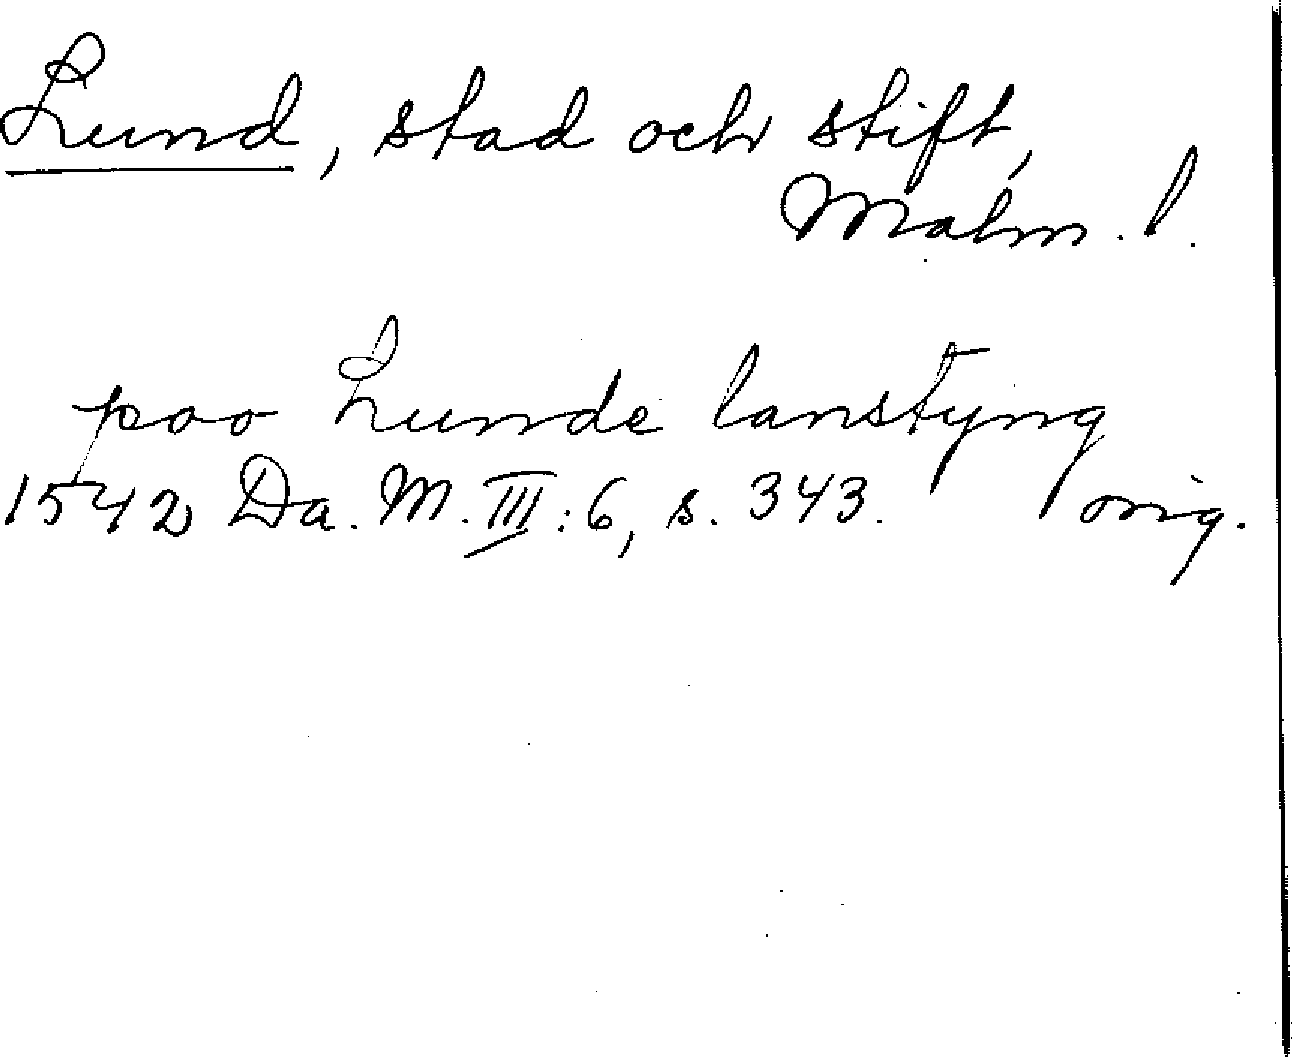 Lund, stad och stift,
Malm. l.
poo Lunde lanstyng
1542 Da. M. III: 6, s. 343. orig.